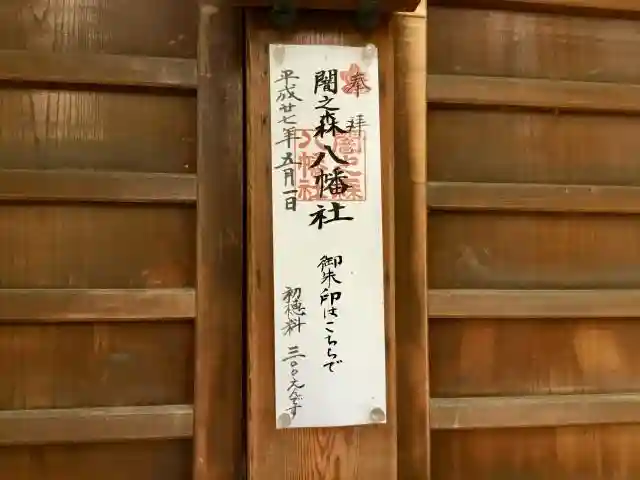 奉拝
闇之森八幡社
平成廿七年五月一日
闇之森
八幡社
御朱印はこちらで
初穂料 三〇〇えんです